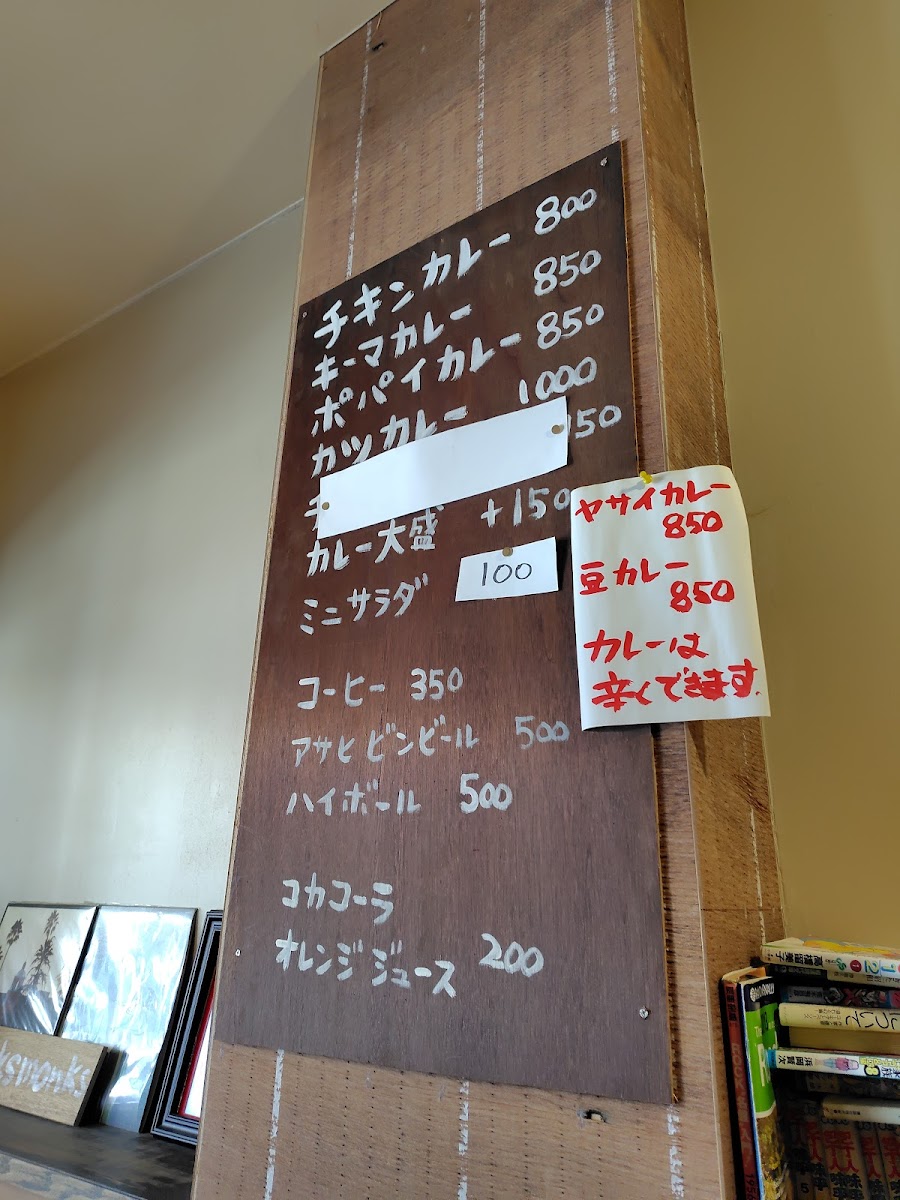 チキンカレー 800
キーマカレー 850
ポパイカレー 850
カツカレー 1000
150
カレー大盛 +150
ミニサラダ 100
コーヒー 350
アサヒ ビンビール 500
ハイボール 500
コカコーラ
オレンジジュース 200
ヤサイカレー
850
豆カレー
850
カレーは
辛くできます.
高橋留美子
について
浜岡賢次